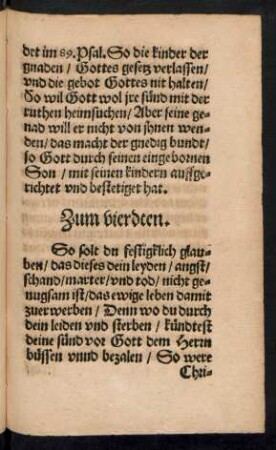 det im 89. Psal. So die kinder der
gnaden / Gottes gesetz verlassen /
vnd die gebot Gottes nit halten /
So wil Gott wol jre sünd mit der
ruthen heimsuchen / Aber seine ge-
nad will er nicht von jhnen wen-
den / das macht der gnedig bundt /
so Gott durch seinen eingebornen
Son / mit seinen kindern auffge-
richtet vnd bestetiget hat.
Zum vierdten.
So solt du festigklich glau-
ben / das dieses dein leyden / angst /
schand / marter / vnd tod / nicht ge-
nugsam ist / das ewige leben damit
zuerwerben / Denn wo du durch
dein leiden vnd sterben / kündtest
deine sünd vor Gott dem Herrn
büssen vnnd bezalen / So were
Chri-